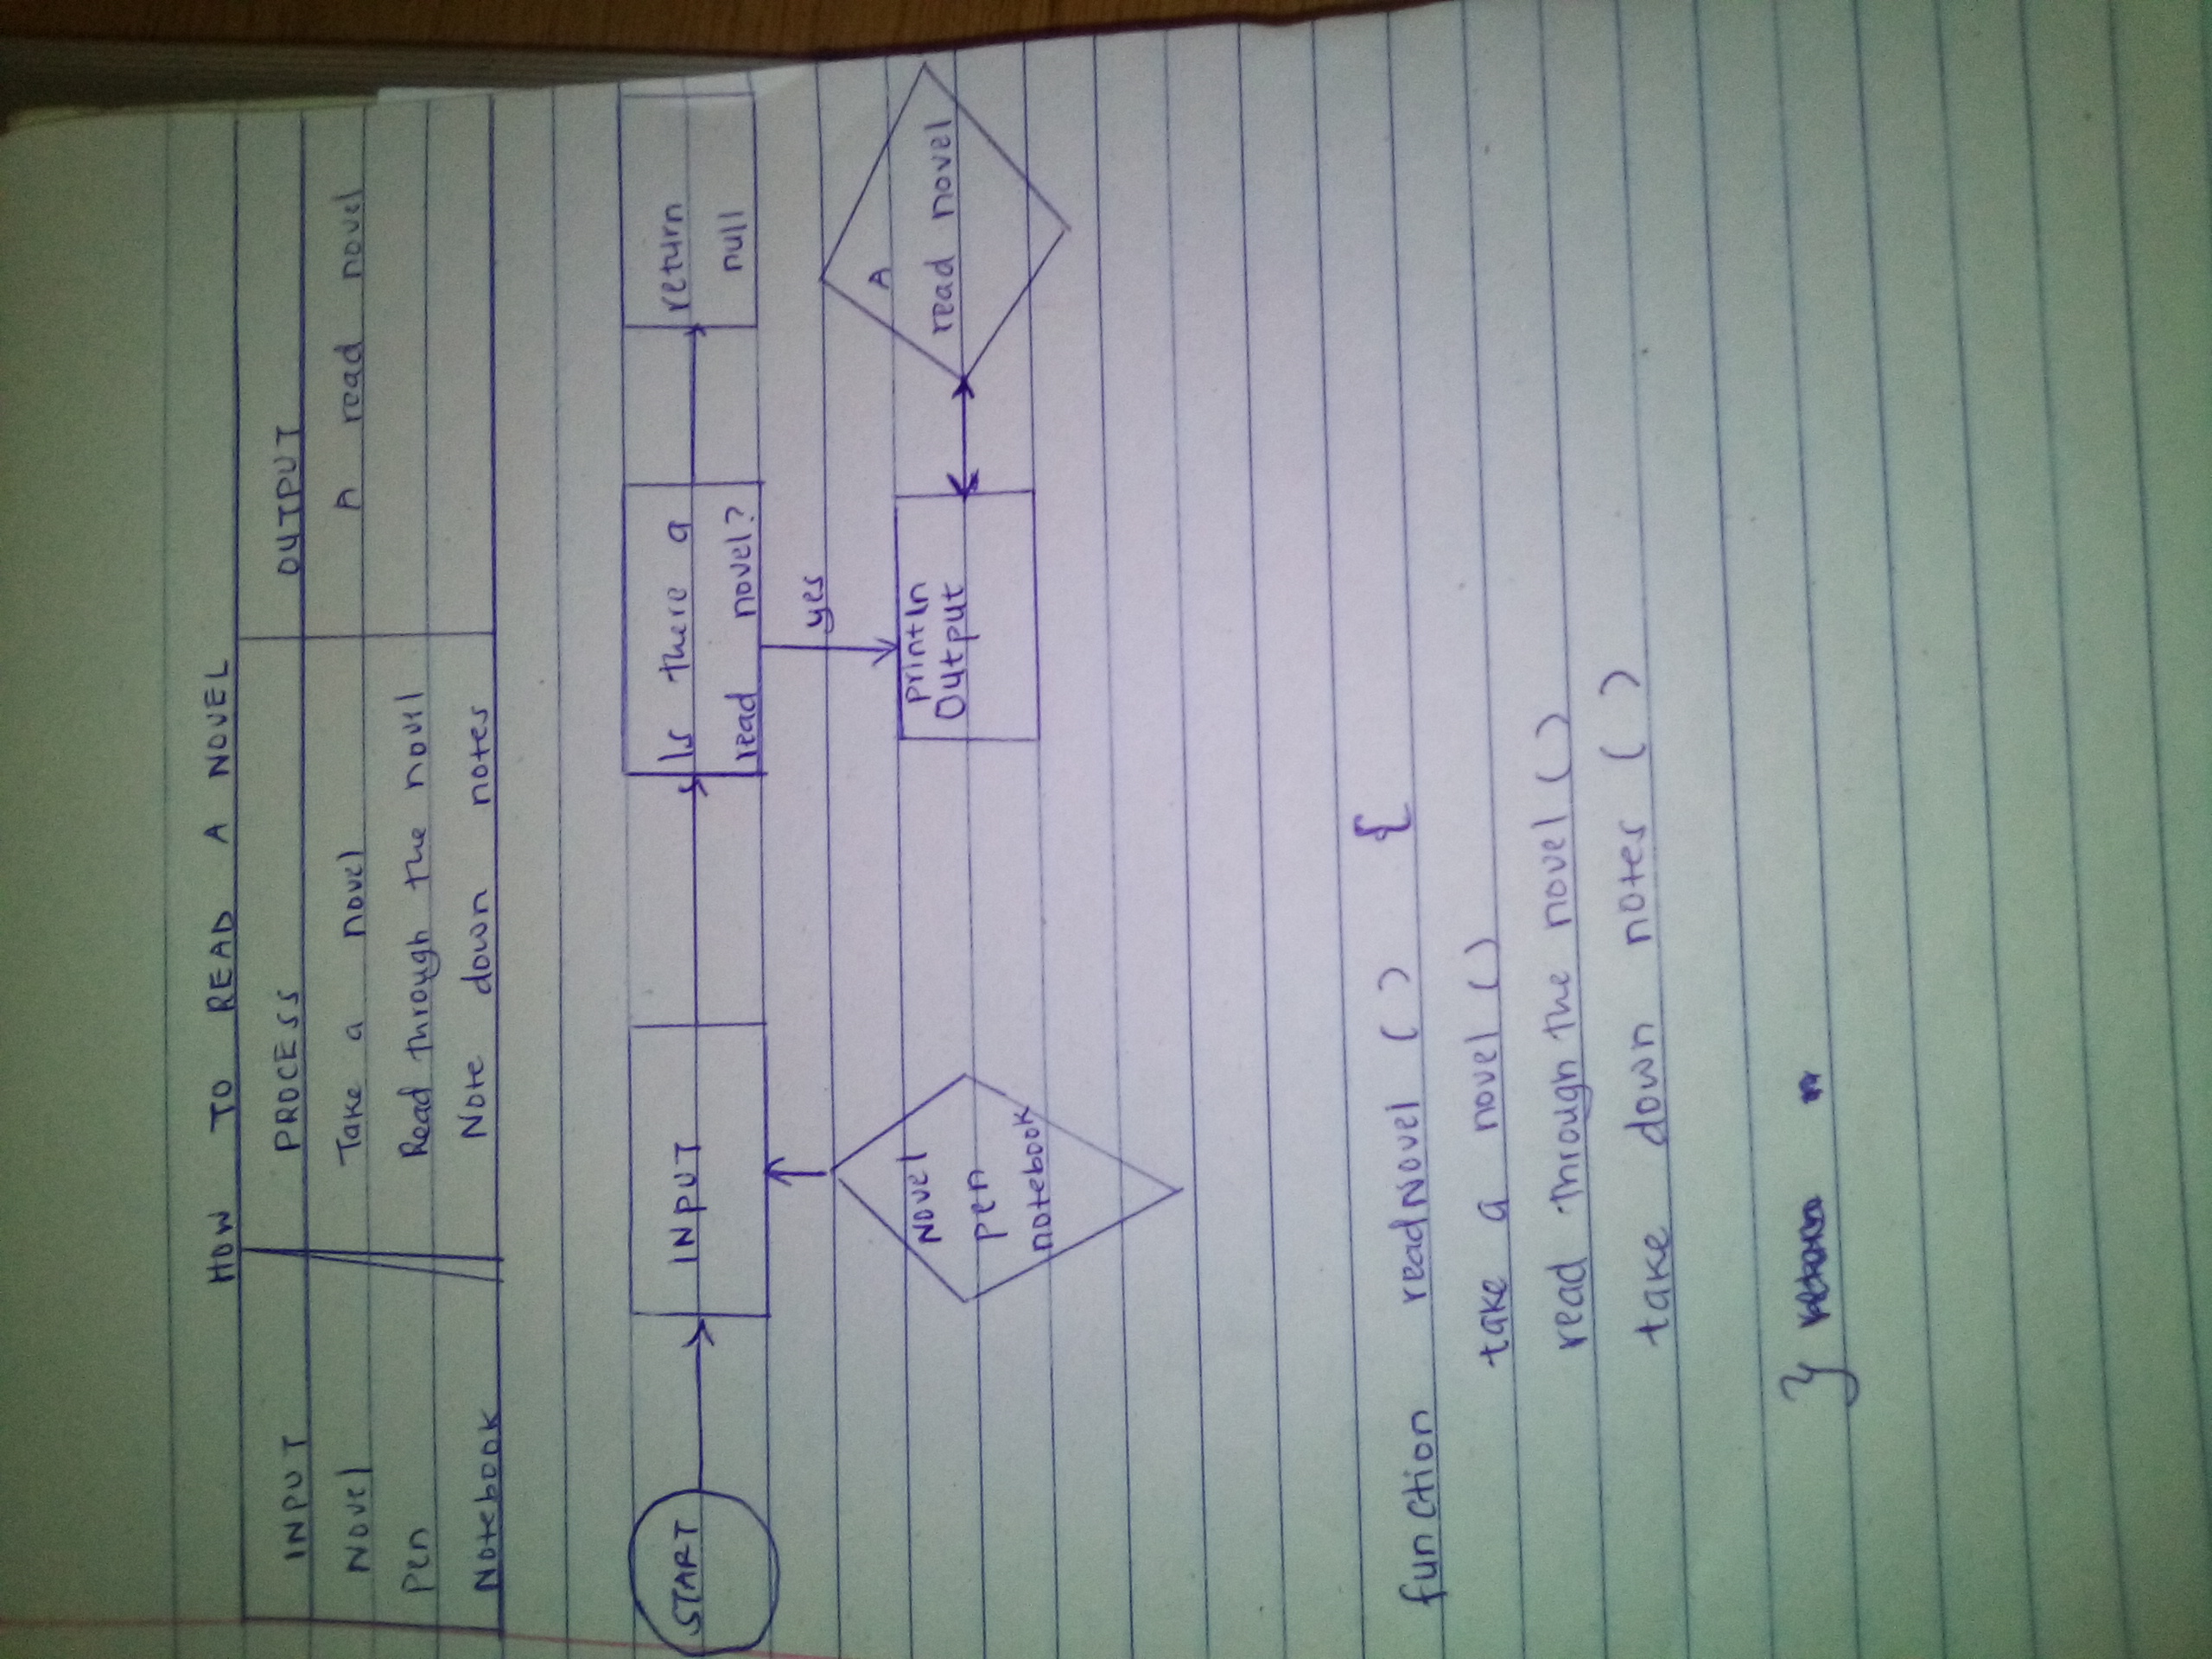 HOW TO READ A NOVEL
INPUT PROCESS OUTPUT
Novel Take a novel A read novel
Pen Read through the novel
Notebook Note down notes
START INPUT Is there a return
read novel? null
yes
Novel println A
pen Output read novel
notebook
function readNovel ( ) {
take a novel ( )
read through the novel ( )
take down notes ( )
}